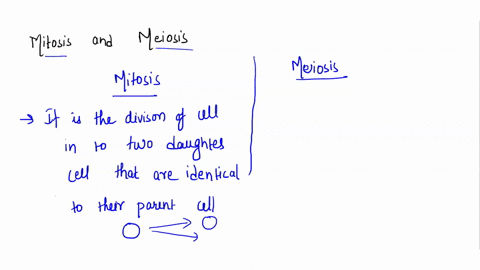 Mitosis and Meiosis
Mitosis
→ It is the divison of cell
in to two daughter
cell that are identical
to their parent cell
Meiosis